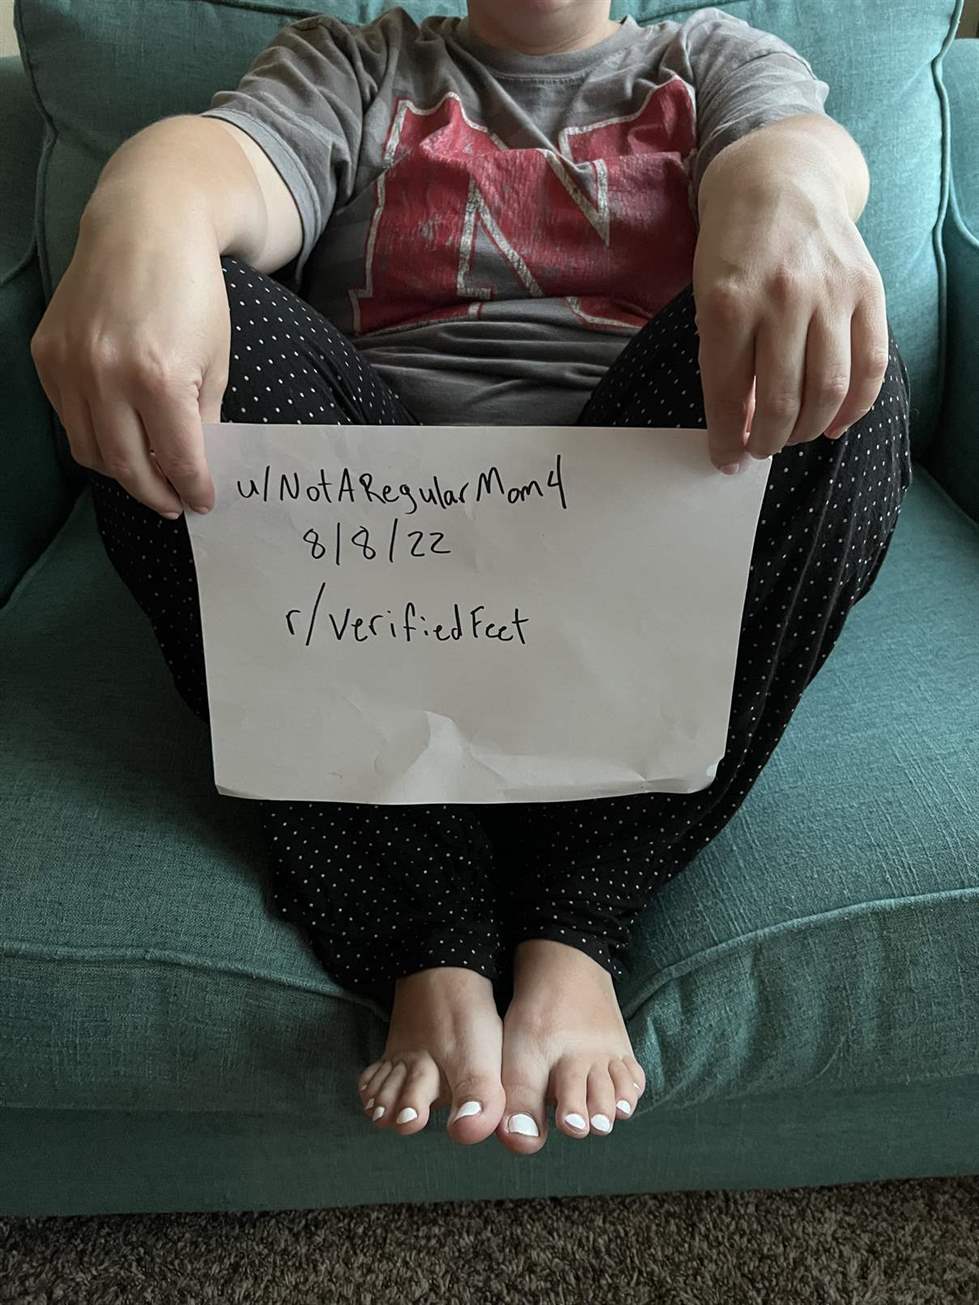 N
u/NotARegularMom4
8/8/22
r/VerifiedFeet